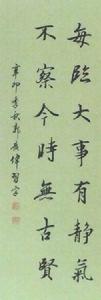 每臨大事有靜氣
不察今時無古賢
辛卯季秋郭英偉習字